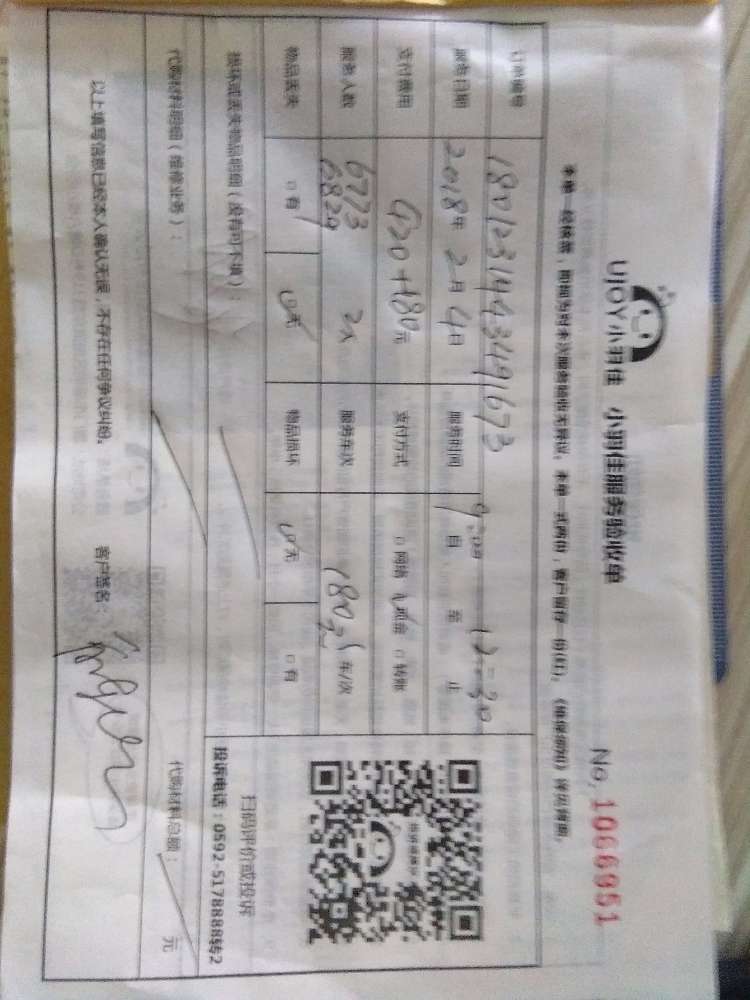 UJOY小羽佳 小羽佳服务验收单
No. 1066951
本单一经核签，即视为对本次服务验收无异议。本单一式两份，客户留存一份(红)。《维保细则》详见背面。
订单编号 1801231443491673
服务日期 2018年 2月 4日 服务时间 9:00 自 至 12:30 止
支付费用 420+180元 支付方式 □网络 □现金 □转账
服务人数 6773 6829 2人 服务车次 180元 车/次
物品丢失 □有 □无 物品损坏 □无 □有
扫码评价或投诉
投诉电话：0592-5178888转2
损坏或丢失物品明细（没有可不填）：
代购材料明细（维修业务）： 代购材料总额： 元
以上填写信息已经本人确认无误，不存在任何争议纠纷。 客户签名：